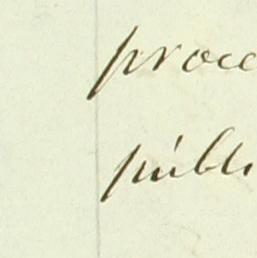 proce
publi